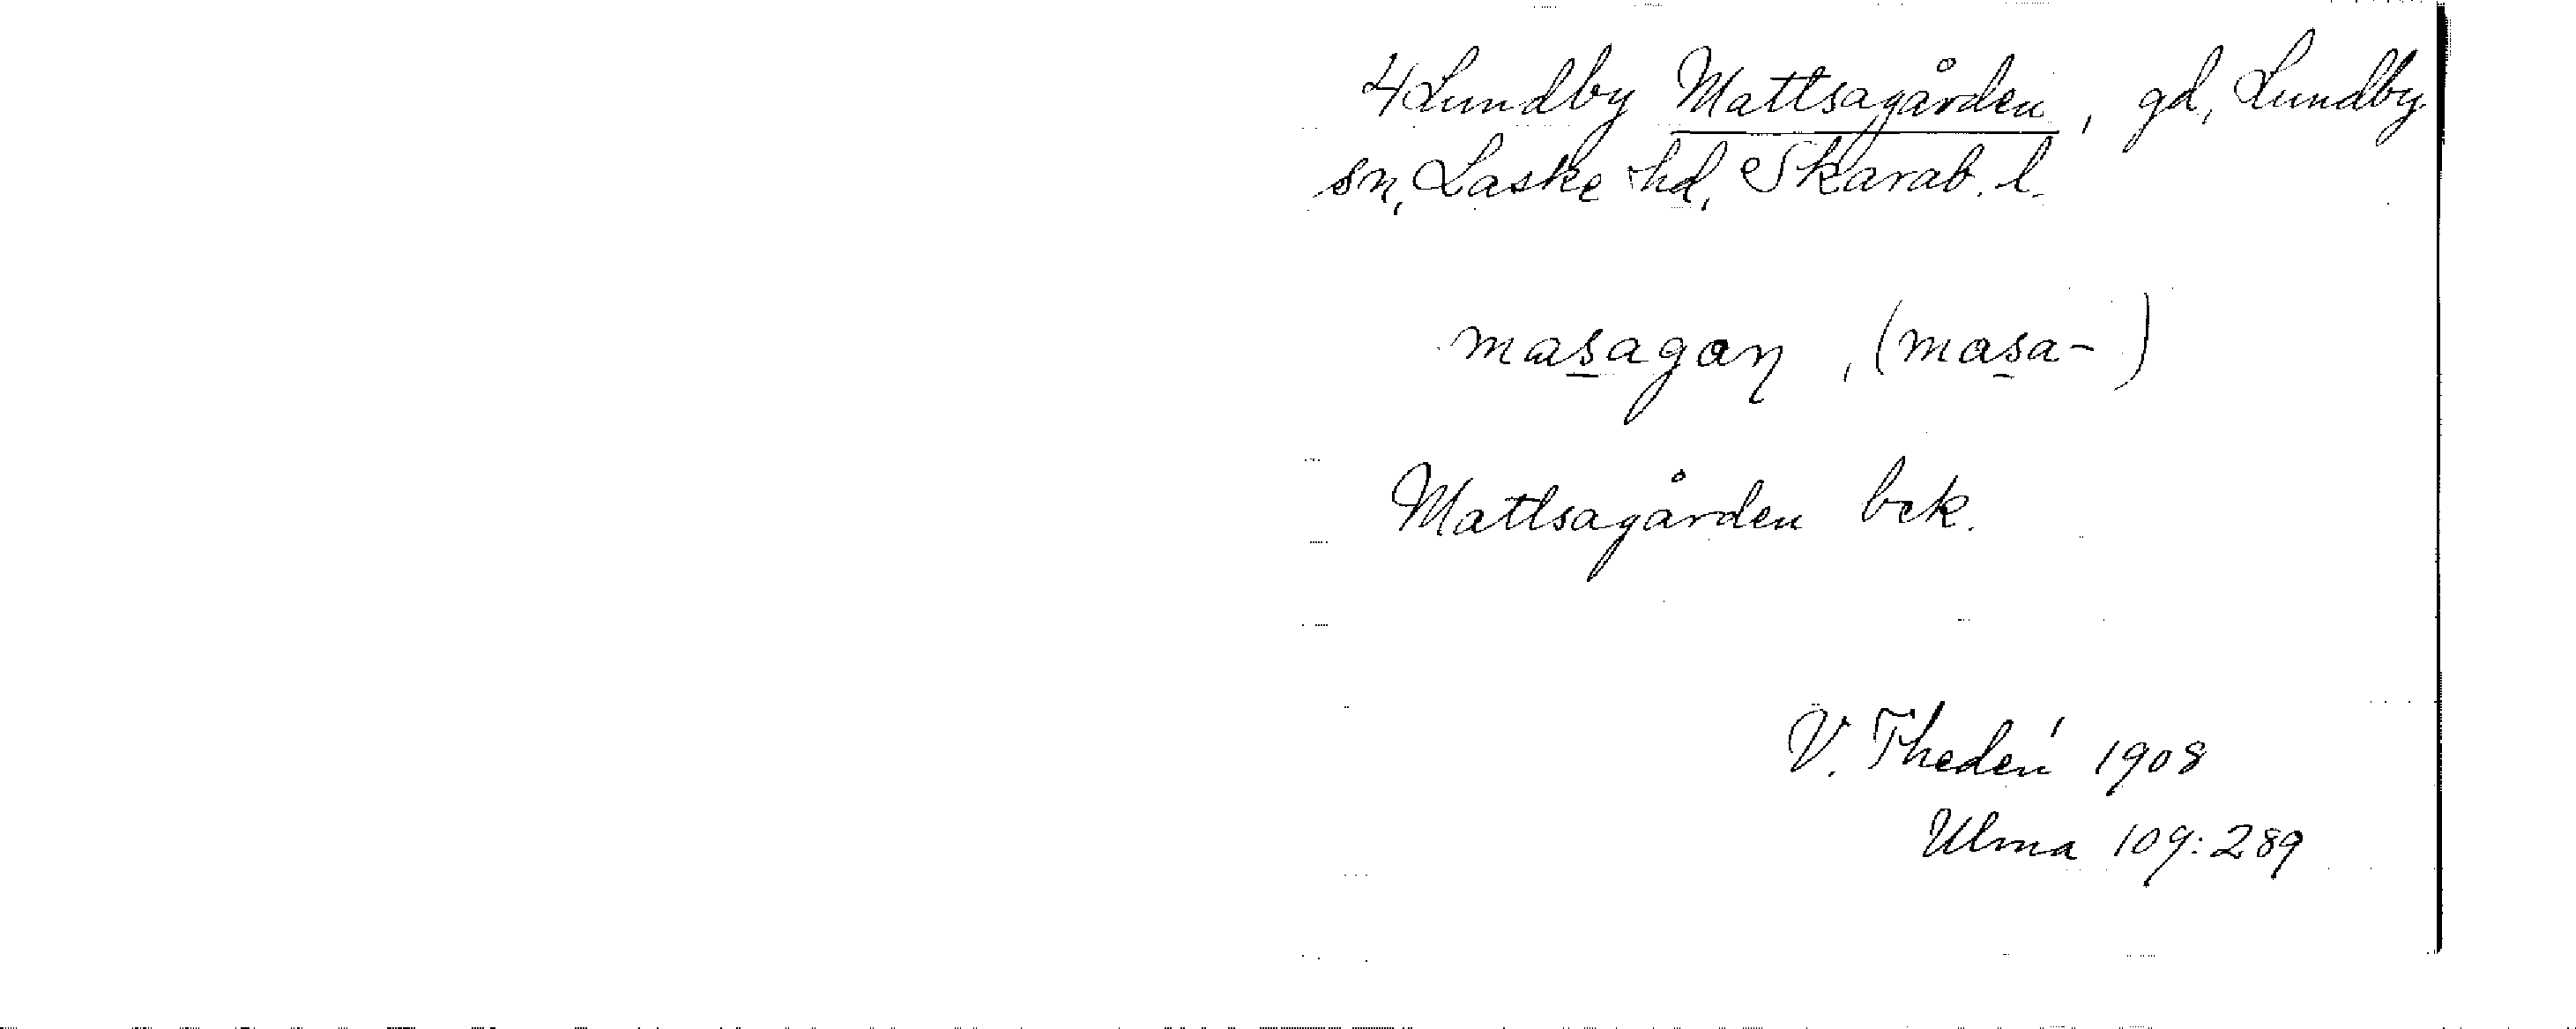 4 Lundby Mattsagården, gd, Lundby
sn, Laske hd, Skarab. l.
masagan, (masa-)
Mattsagården bek.
V. Thedén 1908
Ulma 109:289